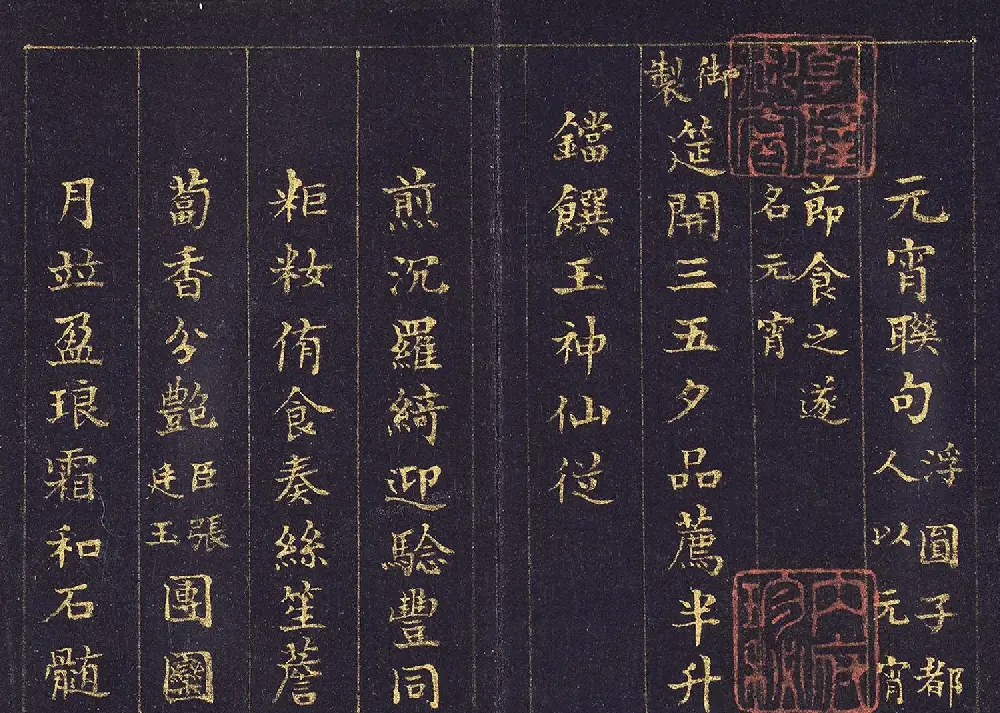 元宵聯句 浮圓子都人以元宵
節食之遂名元宵
御製筵開三五夕品薦半升
鐺饌玉神仙従
煎沉羅綺迎驗豐同
粔籹侑食奏絲笙薝
蔔香分豔臣張廷玉團圞
月竝盈琅霜和石髓
內府珍秘